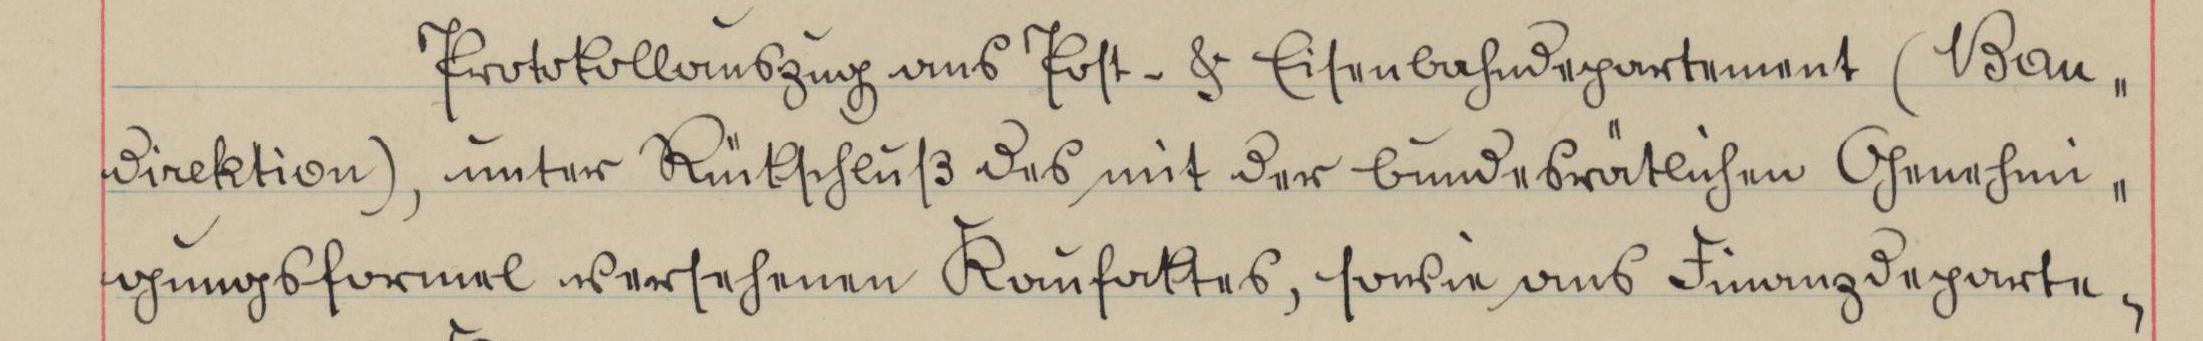 Protokollauszug ans Post- & Eisenbahndepartement (Bau„
direktion), unter Rückschluß des mit der bundesrätlichen Genehmi„
gungsformel versehenen Kaufaktes, sowie ans Finanzdeparte¬